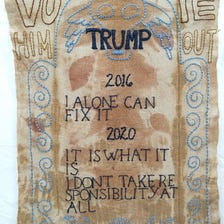 VOTE
HIM OUT
TRUMP
2016
I ALONE CAN
FIX IT
2020
IT IS WHAT IT
IS
I DONT TAKE RE
SPONSIBILITY AT
ALL